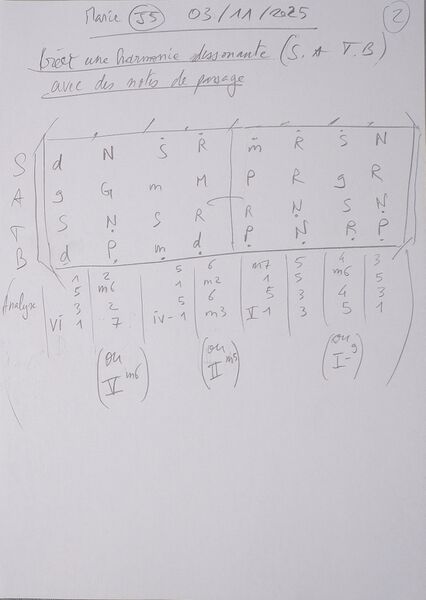 Marie J5 03/11/2025 2
Créer une harmonie dissonante (S. A T. B)
avec des notes de passage
S d N Ṡ Ṙ ṁ Ṙ Ṡ N
A g G m M P R g R
T S Ṇ S R R Ṇ S Ṇ
B ḍ P̣ ṃ ḍ P̣ Ṇ Ṛ P̣
1 2 5 6 m7 5 4 3
5 m6 1 m2 1 5 m6 5
Analyse 3 2 5 6 5 3 4 3
vi 1 7 iv-1 m3 V 1 3 5 1
(ou (ou (ou
V m6) II m5) I- g)